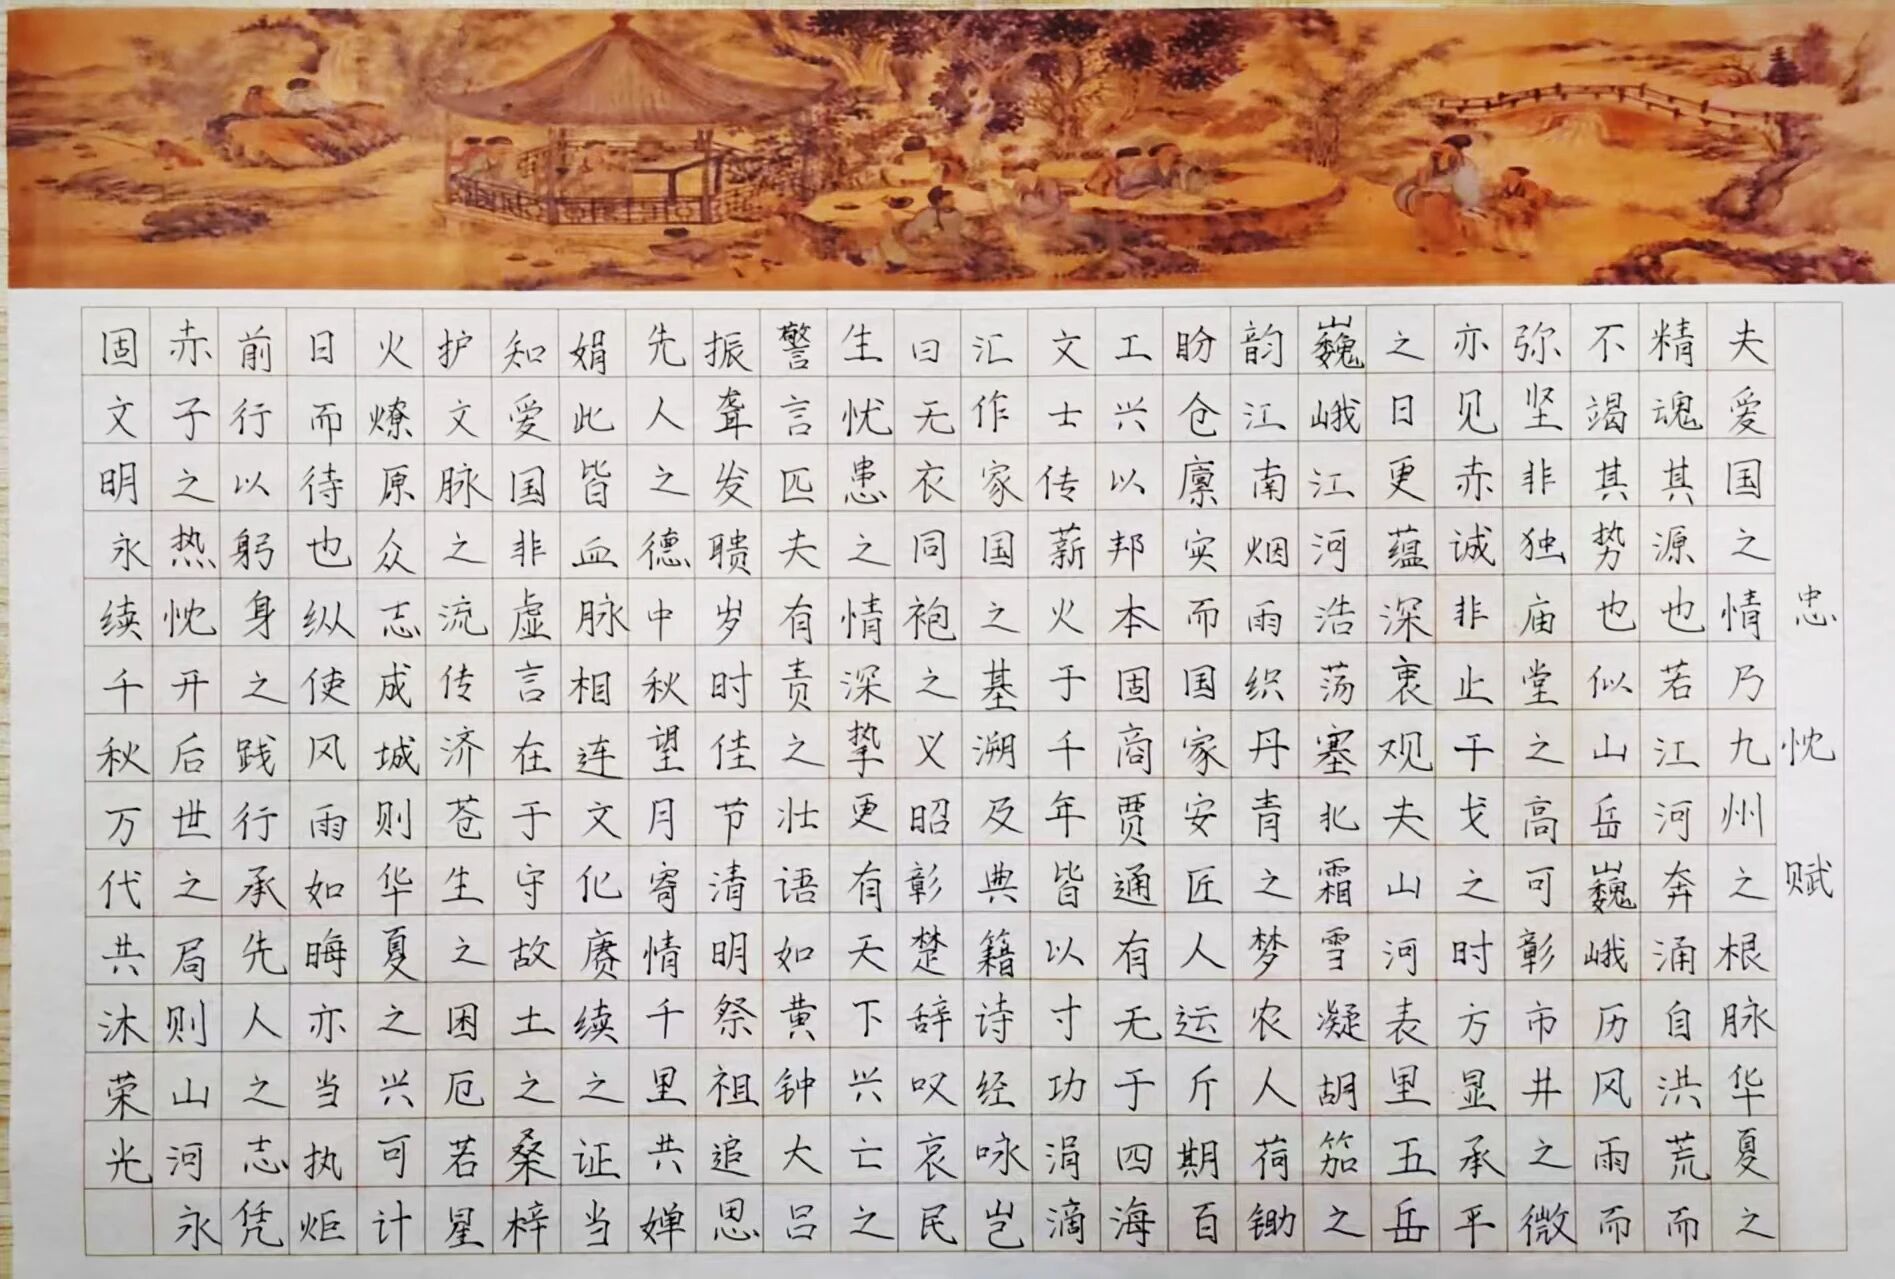 忠忱赋
夫爱国之情乃九州之根脉华夏之
精魂其源也若江河奔涌自洪荒而
不竭其势也似山岳巍峨历风雨而
弥坚非独庙堂之高可彰市井之微
亦见赤诚非止干戈之时方显承平
之日更蕴深衷观夫山河表里五岳
巍峨江河浩荡塞北霜雪凝胡笳之
韵江南烟雨织丹青之梦农人荷锄
盼仓廪实而国家安匠人运斤期百
工兴以邦本固商贾通有无于四海
文士传薪火于千年皆以寸功涓滴
汇作家国之基溯及典籍诗经咏岂
曰无衣同袍之义昭彰楚辞叹哀民
生忧患之情深挚更有天下兴亡之
警言匹夫有责之壮语如黄钟大吕
振聋发聩岁时佳节清明祭祖追思
先人之德中秋望月寄情千里共婵
娟此皆血脉相连文化赓续之证当
知爱国非虚言在于守故土之桑梓
护文脉之流传济苍生之困厄若星
火燎原众志成城则华夏之兴可计
日而待也纵使风雨如晦亦当执炬
前行以躬身之践行承先人之志凭
赤子之热忱开后世之局则山河永
固文明永续千秋万代共沐荣光